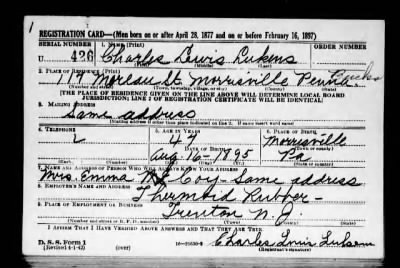 REGISTRATION CARD—(Men born on or after April 28, 1877 and on or before February 16, 1897)
SERIAL NUMBER 1. NAME (Print) ORDER NUMBER
U 426 Charles Lewis Lukens
(First) (Middle) (Last)
2. PLACE OF RESIDENCE (Print)
117 Morris­ville Penna. Bucks
(Number and street) (Town, township, village, or city) (County) (State)
[THE PLACE OF RESIDENCE GIVEN ON THE LINE ABOVE WILL DETERMINE LOCAL BOARD
JURISDICTION; LINE 2 OF REGISTRATION CERTIFICATE WILL BE IDENTICAL]
3. MAILING ADDRESS
Same address
[Mailing address if other than place indicated on line 2. If same insert word same]
4. TELEPHONE 5. AGE IN YEARS 6. PLACE OF BIRTH
47 Morrisville
DATE OF BIRTH (Town or county)
Aug. 16 - 1895 Pa
(Exchange) (Number) (Mo.) (Day) (Yr.) (State or country)
7. NAME AND ADDRESS OF PERSON WHO WILL ALWAYS KNOW YOUR ADDRESS
Mrs. Emma Mc Coy - Same address
8. EMPLOYER'S NAME AND ADDRESS
Thermoid Rubber -
9. PLACE OF EMPLOYMENT OR BUSINESS
Trenton N. J.
(Number and street or R. F. D. number) (Town) (County) (State)
I AFFIRM THAT I HAVE VERIFIED ABOVE ANSWERS AND THAT THEY ARE TRUE.
D. S. S. Form 1
(Revised 4-1-42) (over) Charles Louis